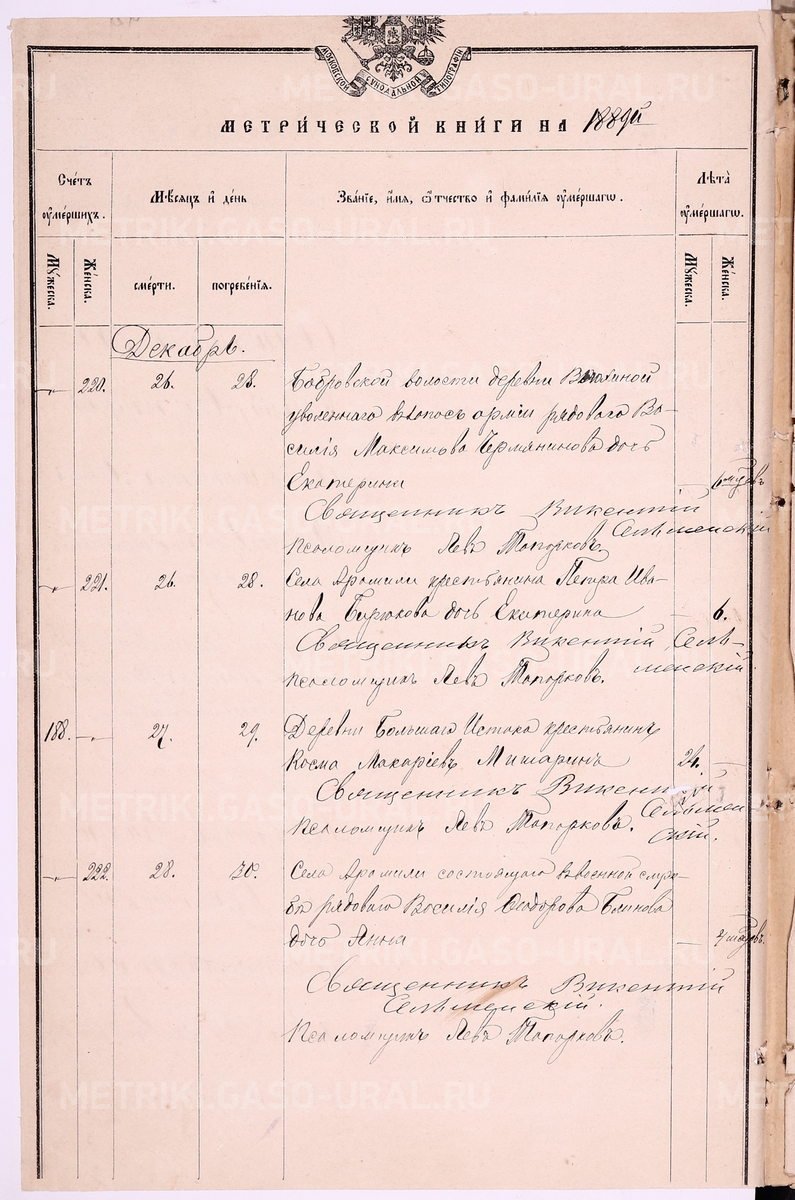 МОСКОВСКОЙ СУНОДАЛЬНОЙ ТИПОГРАФІИ
МЕТРИ́ЧЕСКОЙ КНИ́ГИ НА 1889й
Сче́тъ ᲂу҆ме́ршихъ.
Мѣ́сяцъ и҆ де́нь
Зва́нїе, и҆́мя, ѻ҆́тчество и҆ фами́лїя ᲂу҆ме́ршагѡ.
Лѣ́та ᲂу҆ме́ршагѡ.
Мꙋ́жеска.
Же́нска.
сме́рти.
погребе́нїя.
Мꙋ́жеска.
Же́нска.
Декабрь.
220. 26. 28. Бобровской волости деревни
уволеннаго въ запасъ арміи рядоваго Ва-
силія Максимова Чермянинова дочь
Екатерина 6 мѣсяцевъ
Священникъ Викентій
Сельменскій
Псаломщикъ Левъ Топорковъ.
221. 26. 28. Села Арамили крестьянина Петра Ива-
нова Бирюкова дочь Екатерина — 6.
Священникъ Викентій Сель-
менскій.
Псаломщикъ Левъ Топорковъ.
188. 27. 29. Деревни Большаго Истока крестьянинъ
Косма Макаріевъ Мишаринъ 24. —
Священникъ Викентій
Сельмен-
скій.
Псаломщикъ Левъ Топорковъ.
222. 28. 30. Села Арамили состоящаго въ военной служ-
бѣ рядоваго Василія Ѳеодорова Блинова
дочь Анна —
Священникъ Викентій
Сельменскій.
Псаломщикъ Левъ Топорковъ.
METRIKI.GASO-URAL.RU